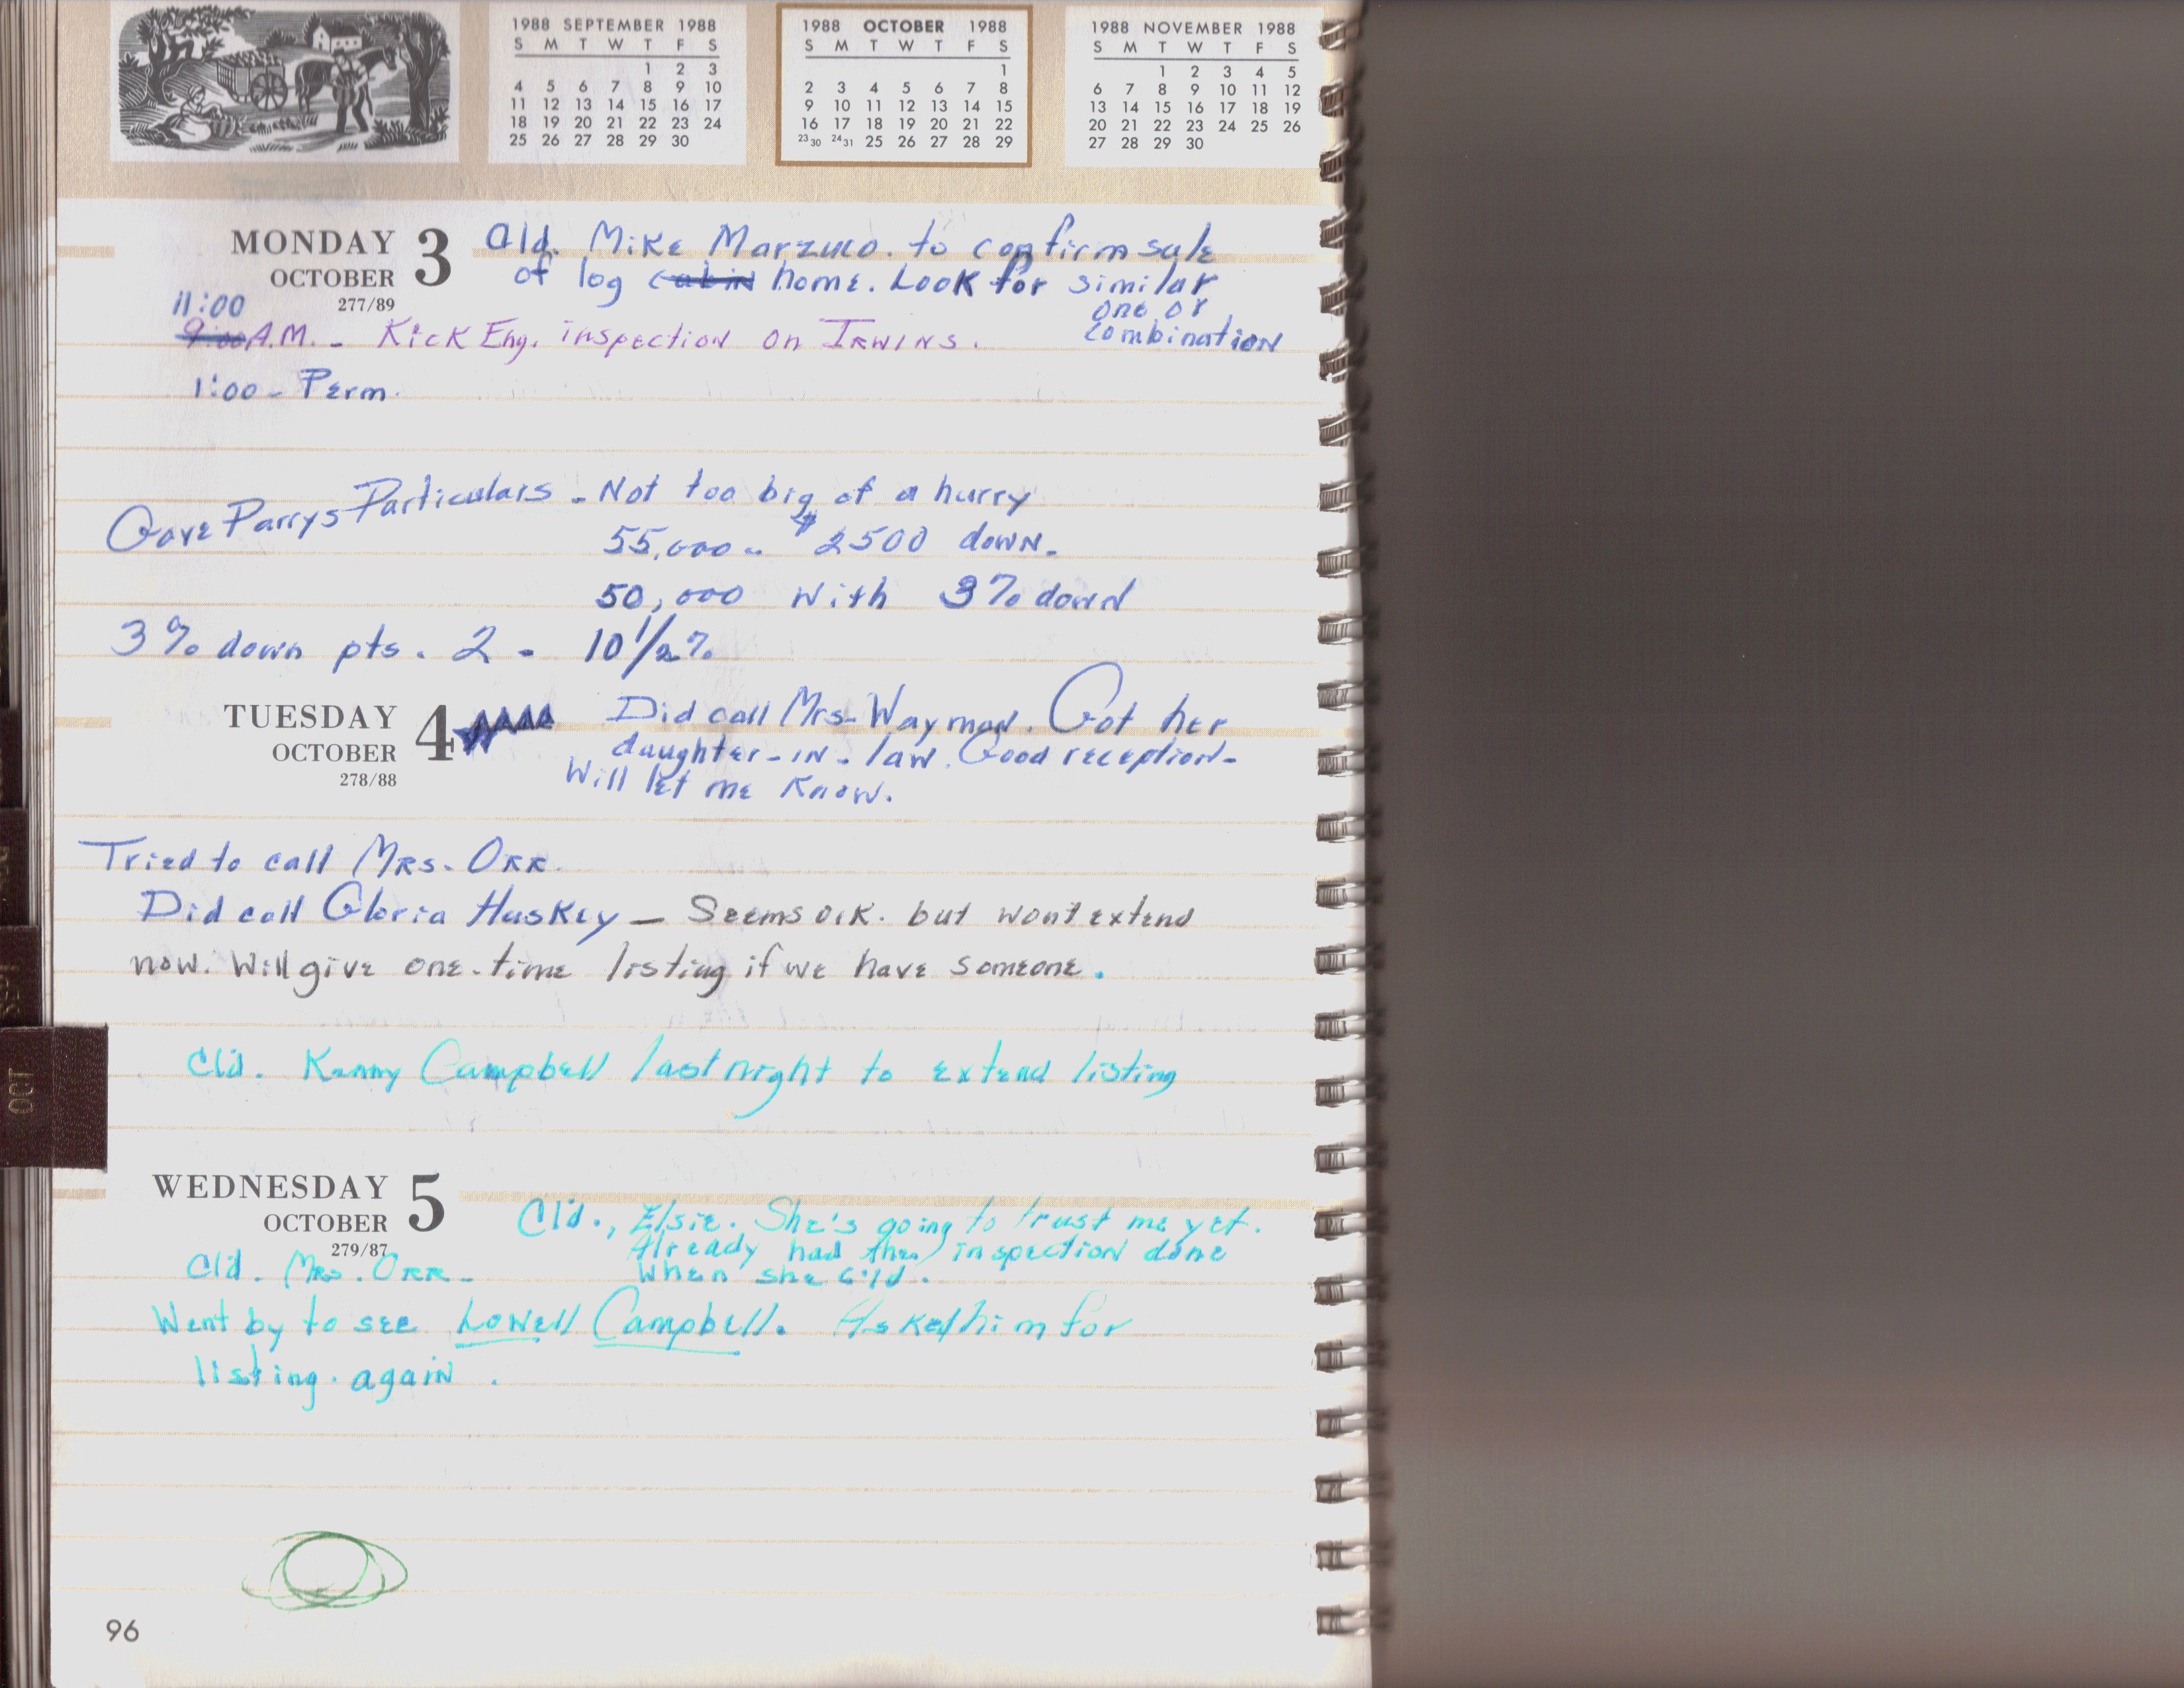 1988 SEPTEMBER 1988
S M T W T F S
1 2 3
4 5 6 7 8 9 10
11 12 13 14 15 16 17
18 19 20 21 22 23 24
25 26 27 28 29 30
1988 OCTOBER 1988
S M T W T F S
1
2 3 4 5 6 7 8
9 10 11 12 13 14 15
16 17 18 19 20 21 22
23 30 24 31 25 26 27 28 29
1988 NOVEMBER 1988
S M T W T F S
1 2 3 4 5
6 7 8 9 10 11 12
13 14 15 16 17 18 19
20 21 22 23 24 25 26
27 28 29 30
MONDAY 3
OCTOBER
277/89
Cld. Mike Marzuco. to confirm sale
of log cabin home. Look for similar
one or
combination
11:00
9:00 A.M. - Kick Eng. inspection on IRWINS.
1:00 - Perm.
Gave Parrys Particulars - Not too big of a hurry
55,000 - $2500 down.
50,000 with 3% down
3% down pts. 2 - 10 1/2%
TUESDAY 4
OCTOBER
278/88
Did call Mrs. Wayman. Got her
daughter-in-law. Good reception-
Will let me know.
Tried to call MRS. ORR.
Did call Gloria Huskey — Seems O.K. but wont extend
now. Will give one-time listing if we have someone.
Cld. Kenny Campbell last night to extend listing
OCT
WEDNESDAY 5
OCTOBER
279/87
Cl'd., Elsie. She's going to trust me yet.
Already had the inspection done
when she c'ld.
Cl'd. Mrs. ORR -
Went by to see Lowell Campbell. Asked him for
listing. again.
96